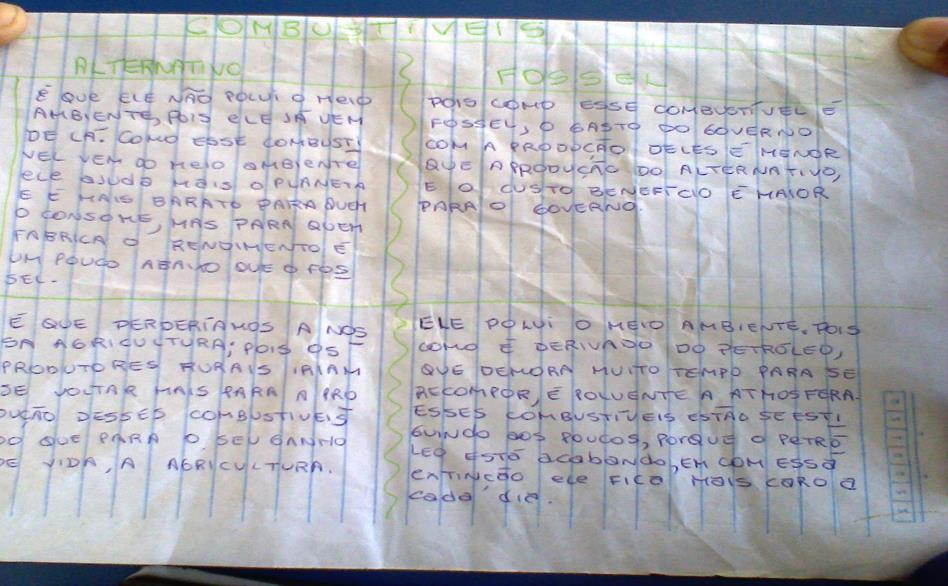 COMBUSTÍVEIS
ALTERNATIVO
É QUE ELE NÃO POLUI O MEIO
AMBIENTE, POIS ELE JÁ VEM
DE LÁ. COMO ESSE COMBUSTI
VEL VEM DO MEIO AMBIENTE
ELE AJUDA MAIS O PLANETA
E É MAIS BARATO PARA QUEM
O CONSOME, MAS PARA QUEM
FABRICA O RENDIMENTO É
UM POUCO ABAIXO QUE O FOS
SEL.
FOSSEL
POIS COMO ESSE COMBUSTÍVEL É
FOSSEL, O GASTO DO GOVERNO
COM A PRODUÇÃO DELES É MENOR
QUE A PRODUÇÃO DO ALTERNATIVO,
E O CUSTO BENEFÍCIO É MAIOR
PARA O GOVERNO.
É QUE PERDERÍAMOS A NOS
SA AGRICULTURA; POIS OS
PRODUTORES RURAIS IRIAM
SE VOLTAR MAIS PARA A PRO
DUÇÃO DESSES COMBUSTIVEIS
DO QUE PARA O SEU GANHO
DE VIDA, A AGRICULTURA.
ELE POLUI O MEIO AMBIENTE. POIS
COMO É DERIVADO DO PETRÓLEO,
QUE DEMORA MUITO TEMPO PARA SE
RECOMPOR, É POLUENTE A ATMOSFERA.
ESSES COMBUSTÍVEIS ESTÃO SE ESTI
GUINDO AOS POUCOS, PORQUE O PETRÓ
LEO ESTÁ acabando, EM COM ESSA
EXTINÇÃO ele FICA MAIS CARO a
cada dia.